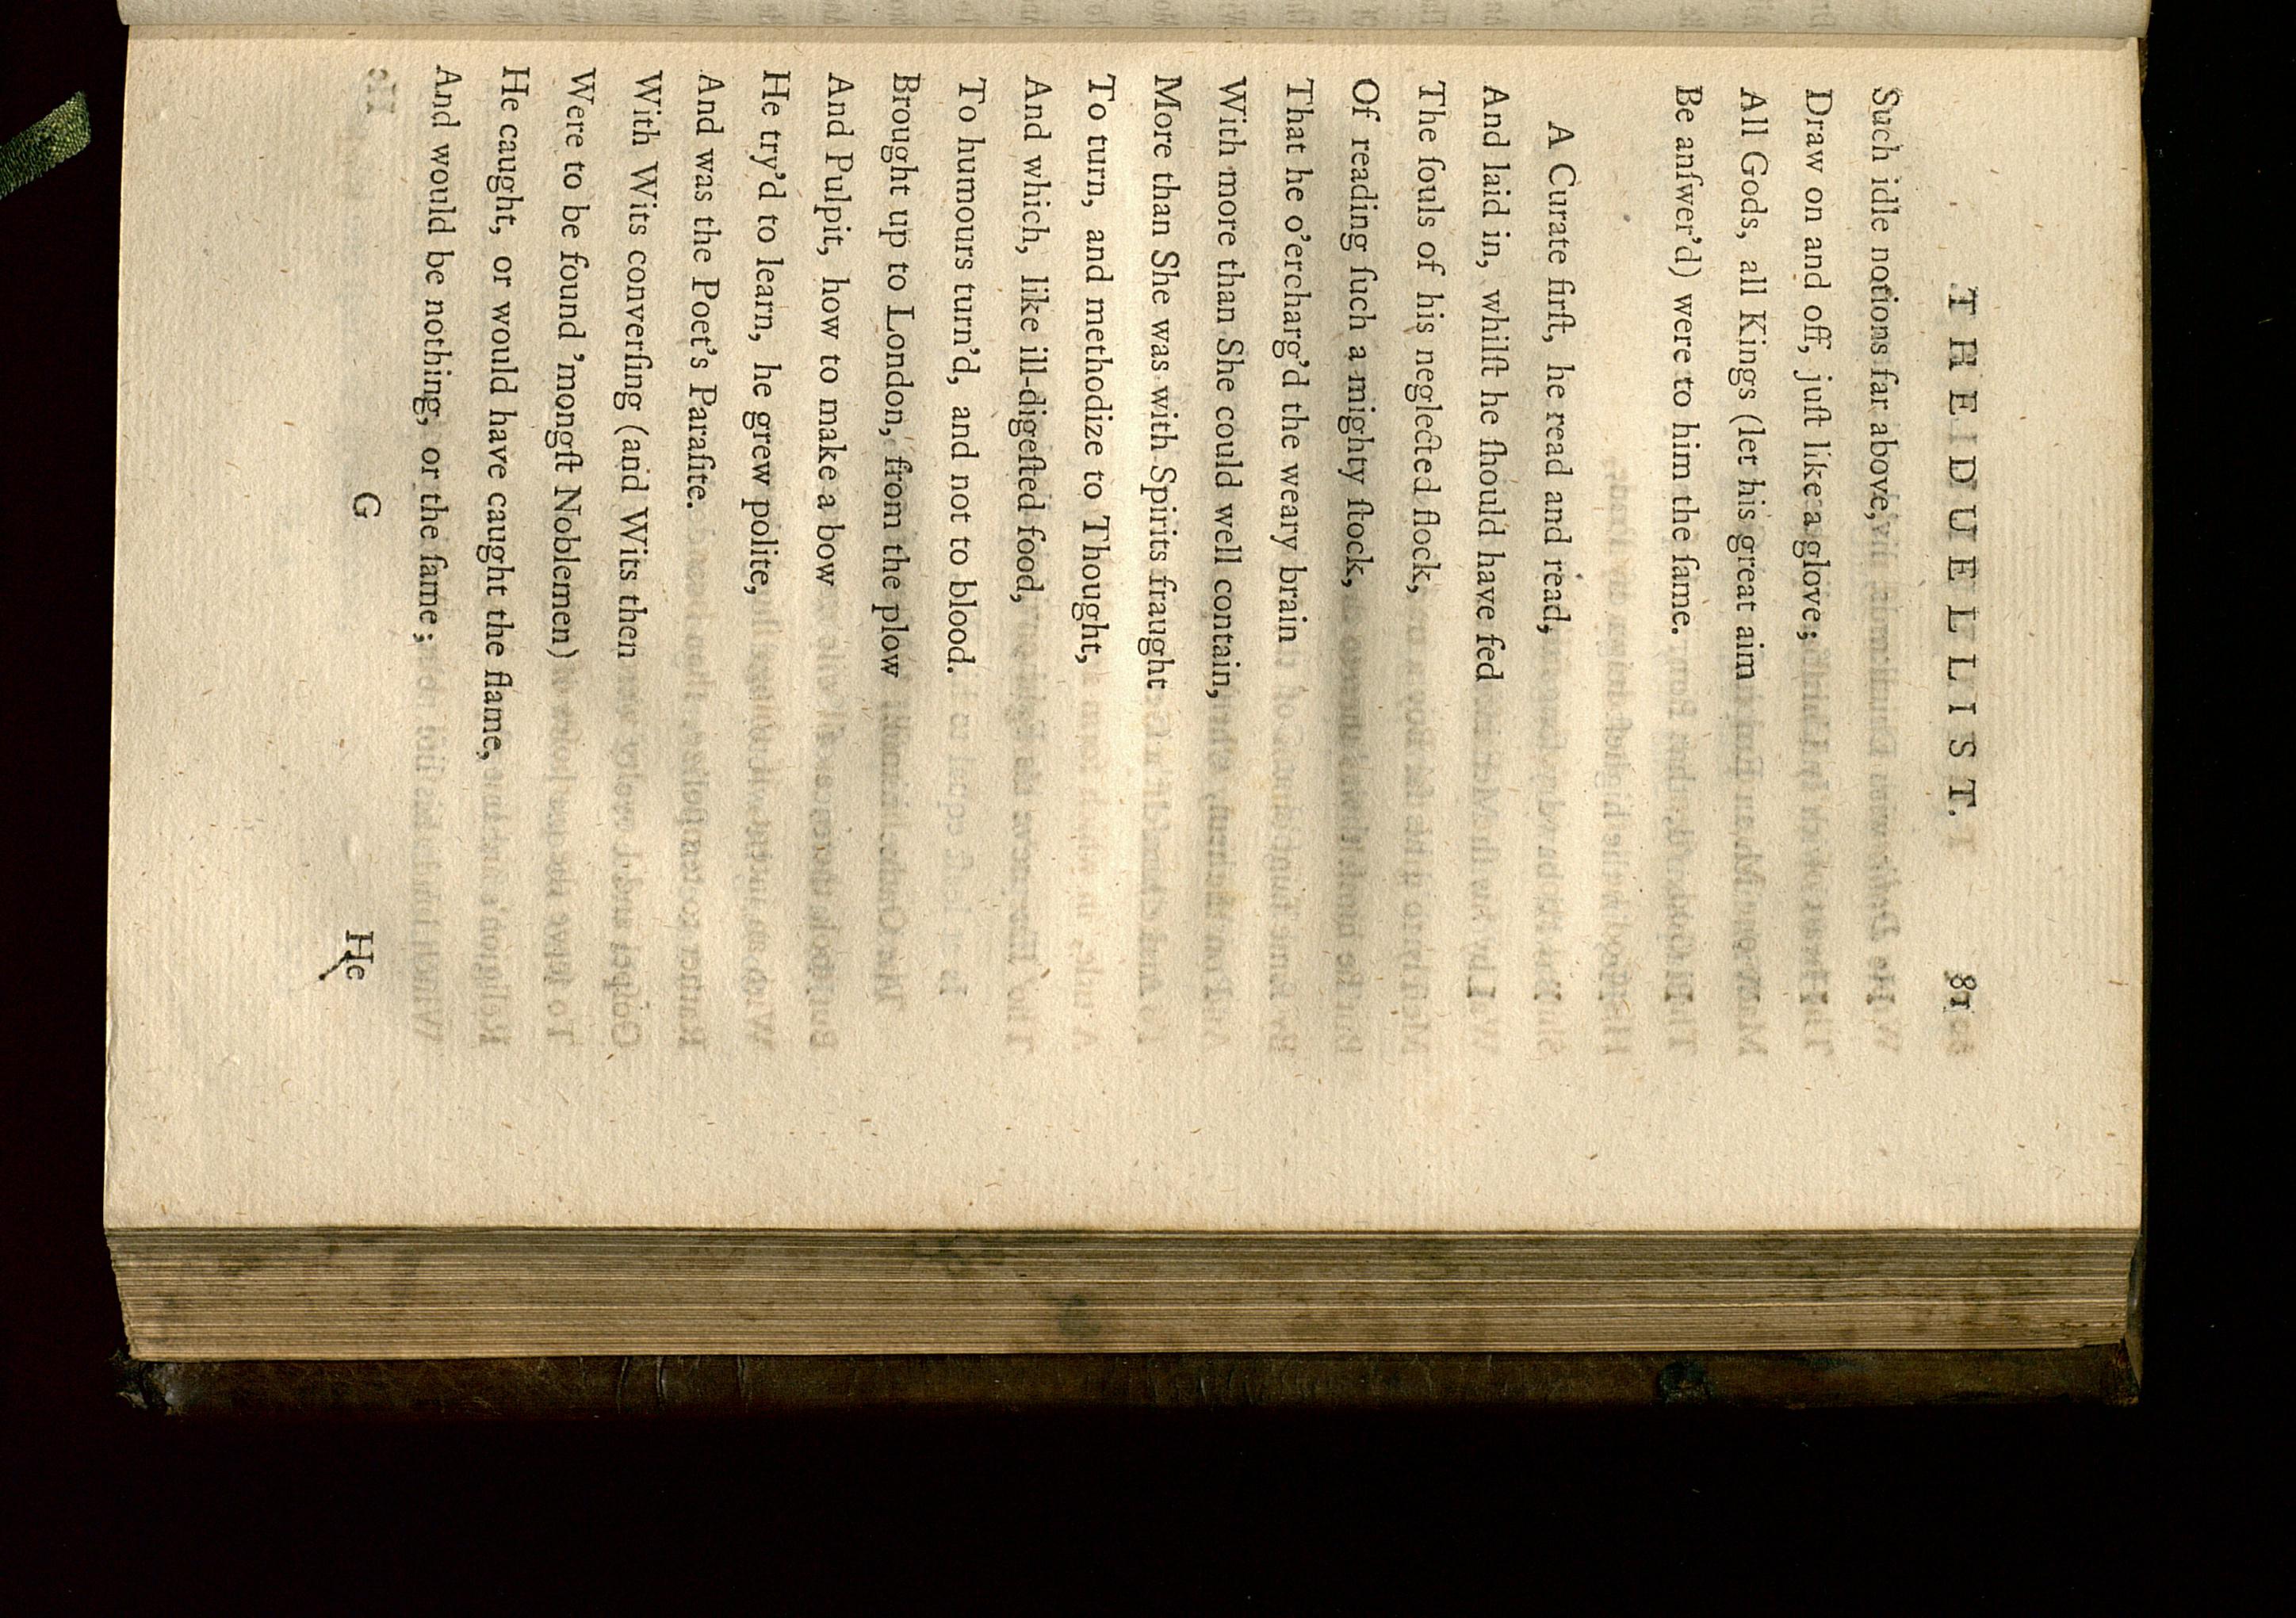 THE DUELLIST. 81
Such idle notions far above,
Draw on and off, juſt like a glove;
All Gods, all Kings (let his great aim
Be anſwer'd) were to him the ſame.
A Curate firſt, he read and read,
And laid in, whilſt he ſhould have fed
The ſouls of his neglected flock,
Of reading ſuch a mighty ſtock,
That he o'ercharg'd the weary brain
With more than She could well contain,
More than She was with Spirits fraught
To turn, and methodize to Thought,
And which, like ill-digeſted food,
To humours turn'd, and not to blood.
Brought up to London, from the plow
And Pulpit, how to make a bow
He try'd to learn, he grew polite,
And was the Poet's Paraſite.
With Wits converſing (and Wits then
Were to be found 'mongſt Noblemen)
He caught, or would have caught the flame,
And would be nothing, or the ſame;
G He